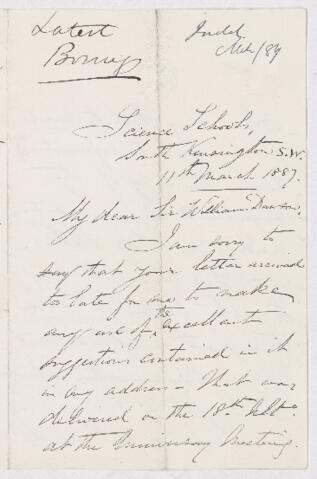 Latest
Bonney
Judd
Mch/87
Science Schools,
South Kensington S.W.
11th March 1887.
My dear Sir William Dawson,
I am sorry to
say that your letter arrived
too late for me to make
any use of the excellent
suggestions contained in it
in my address - that was
delivered on the 18th ulto
at the Anniversary Meeting.